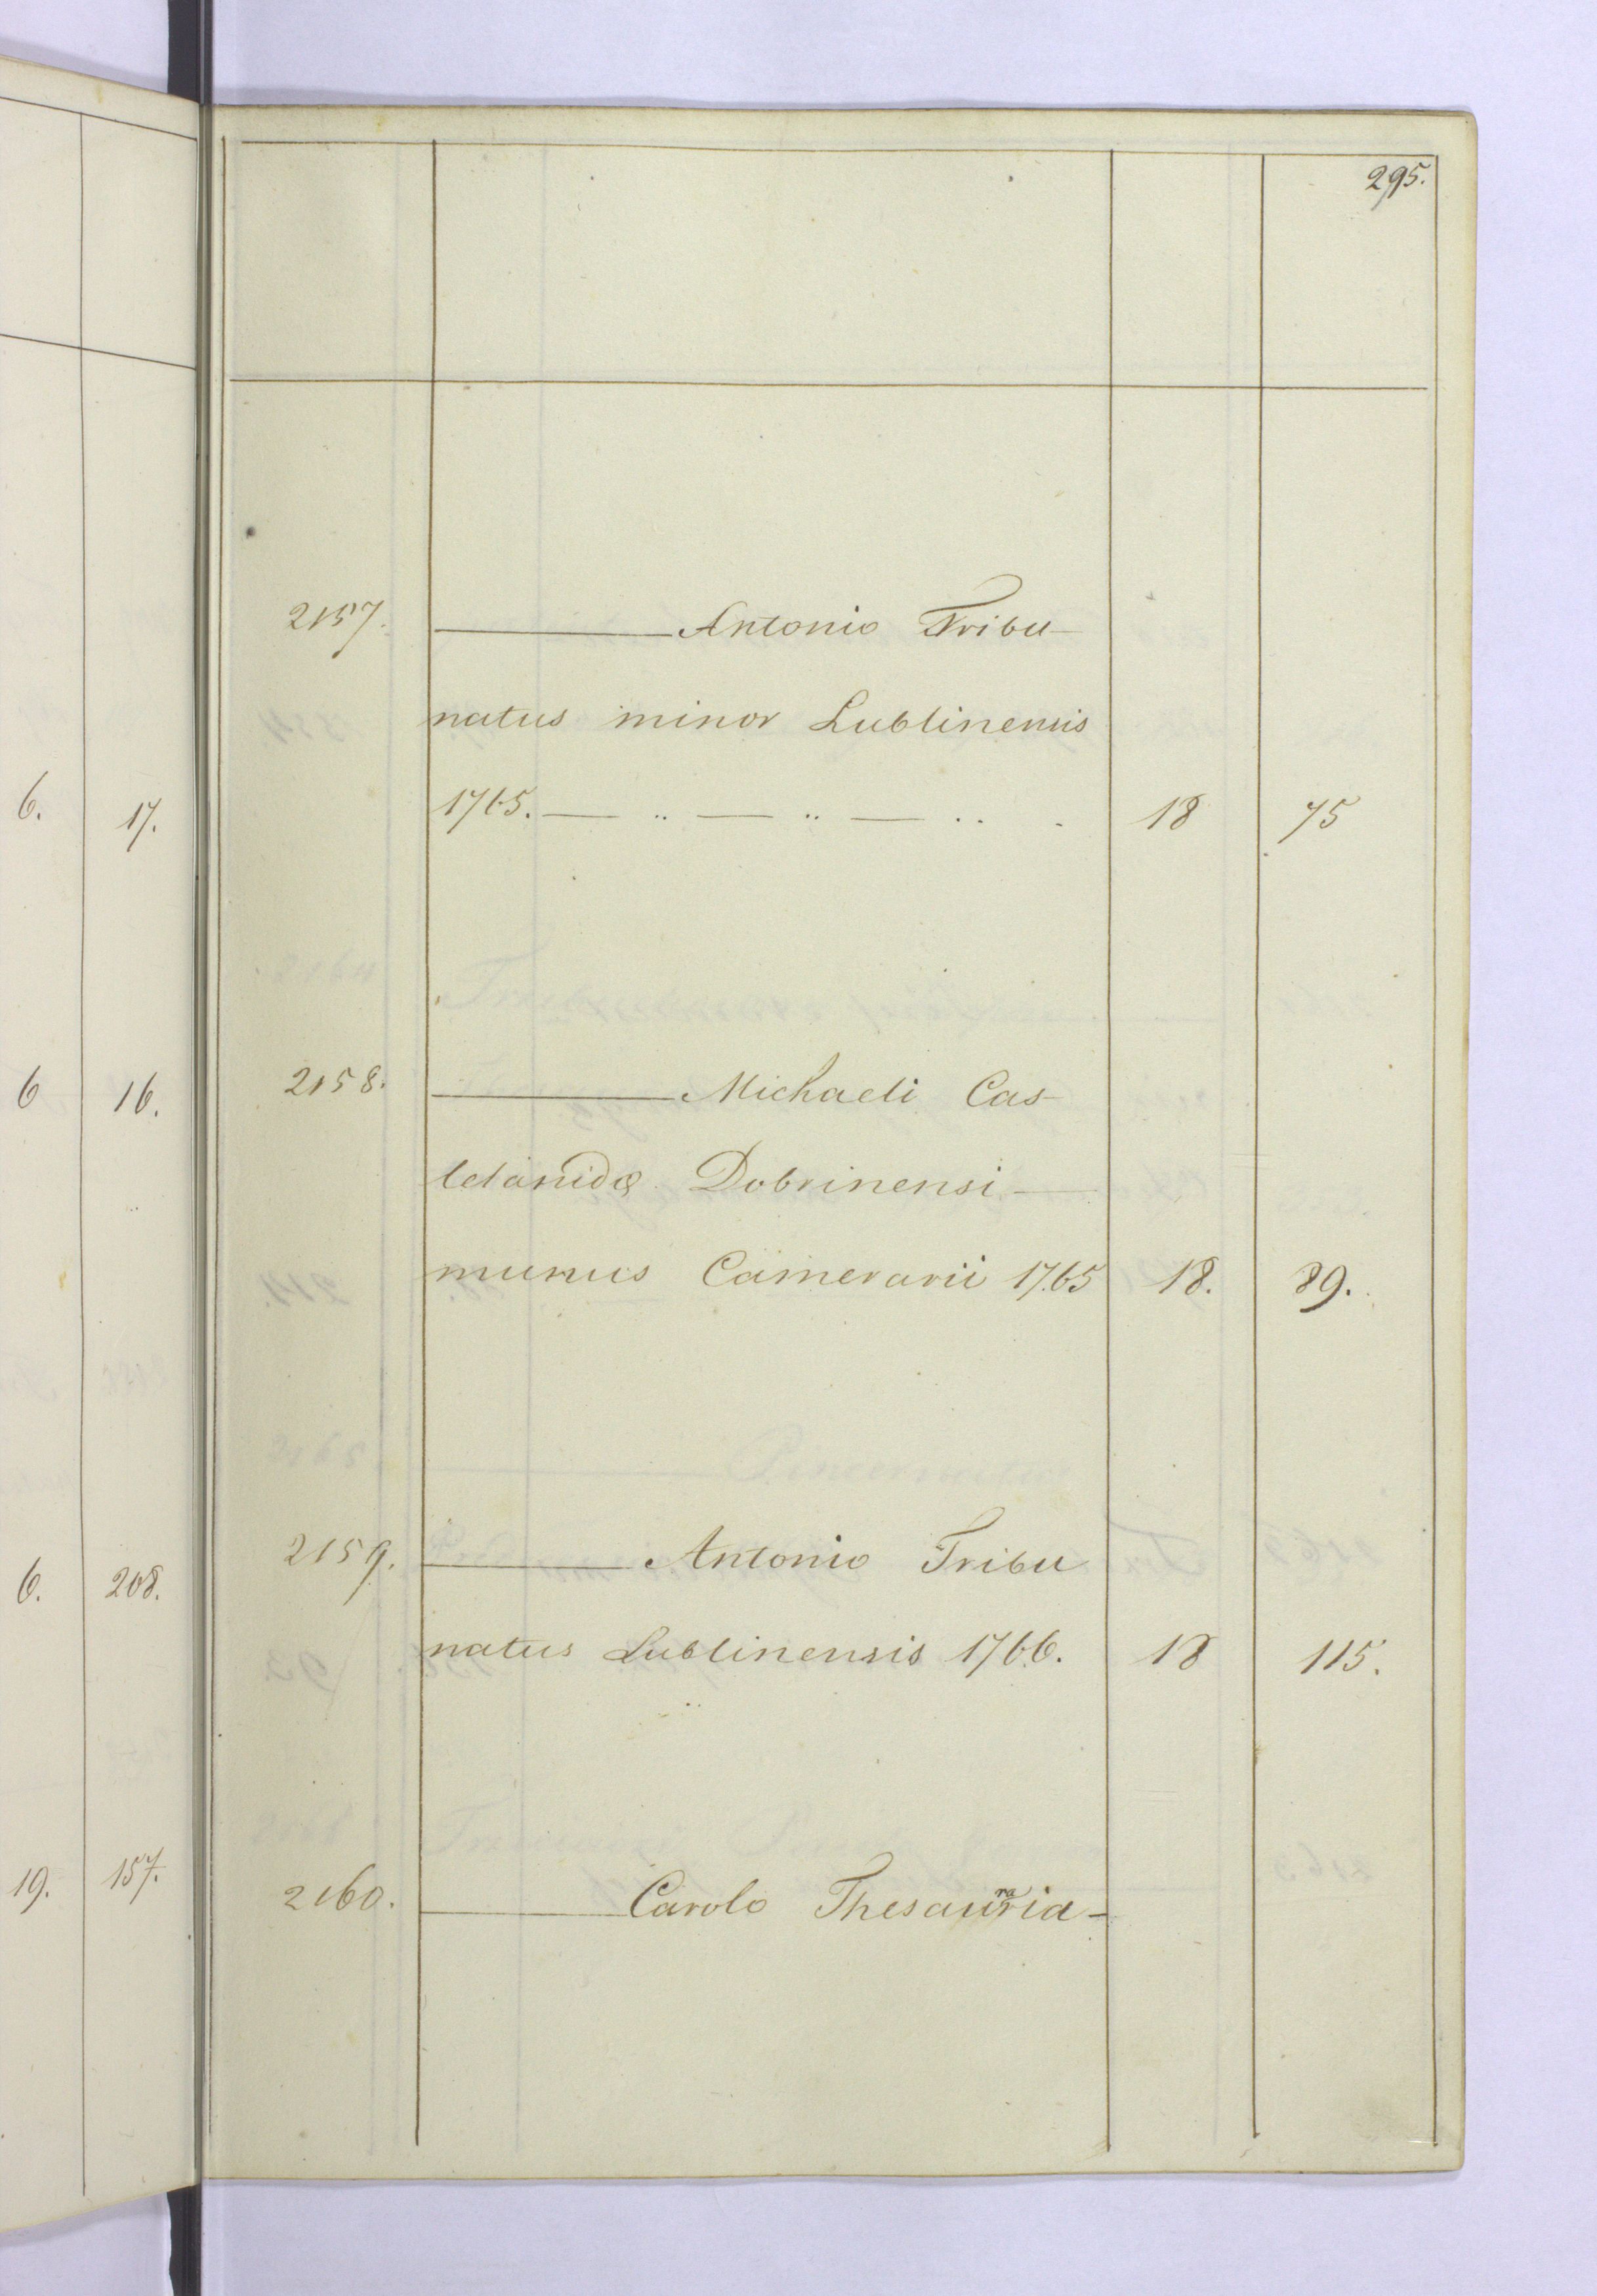 295.
2157. Antonio Tribu-
natus minor Lublinensis
6. 17. 1765. — .. — .. — .. . 18 75
6 16. 2158. Michaeli Cas-
telanidæ Dobrinensi —
munus Camerarii 1765 18. 89.
2159. Antonio Tribu
6. 208. natus Lublinensis 1766. 18 115.
19. 157. 2160. Carolo Thesauraria-